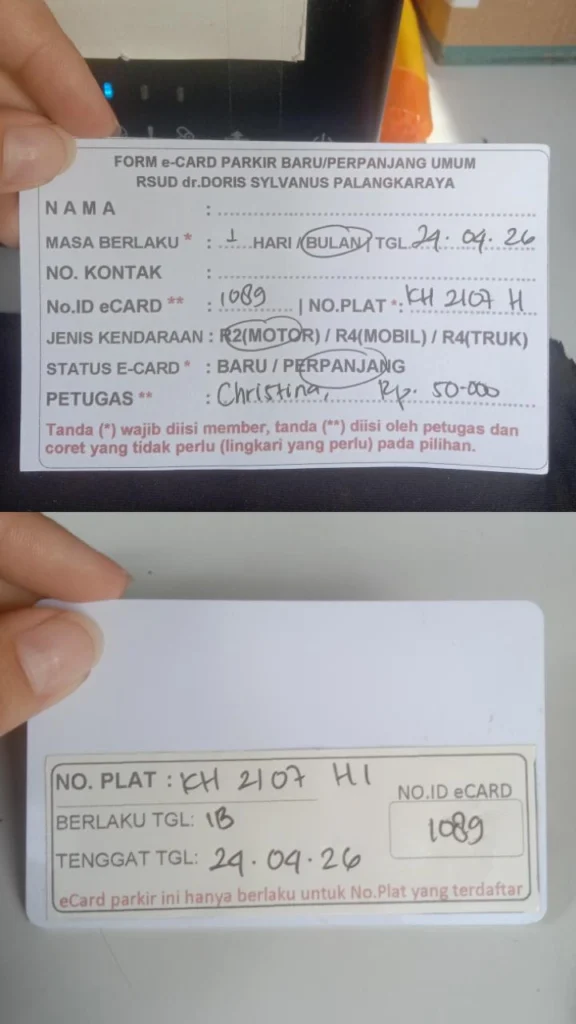 FORM e-CARD PARKIR BARU/PERPANJANG UMUM
RSUD dr.DORIS SYLVANUS PALANGKARAYA
NAMA :
MASA BERLAKU * : 1 HARI / BULAN / TGL. 29.04.26
NO. KONTAK :
No.ID eCARD ** : 1089 | NO.PLAT *: KH 2107 H
JENIS KENDARAAN : R2(MOTOR) / R4(MOBIL) / R4(TRUK)
STATUS E-CARD * : BARU / PERPANJANG
PETUGAS ** : Christina, Rp. 50.000
Tanda (*) wajib diisi member, tanda (**) diisi oleh petugas dan
coret yang tidak perlu (lingkari yang perlu) pada pilihan.
NO. PLAT : KH 2107 HI
NO.ID eCARD
BERLAKU TGL: 1B
1089
TENGGAT TGL: 29.04.26
eCard parkir ini hanya berlaku untuk No.Plat yang terdaftar